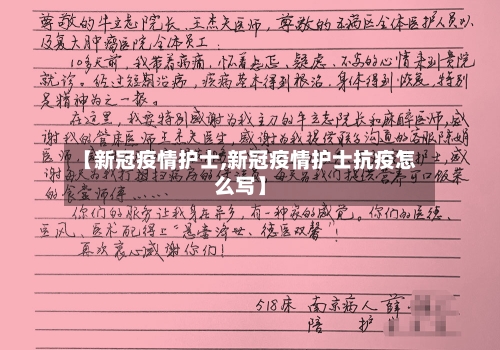 尊敬的牛立志院长、王杰天医师,尊敬的五病区全体医护人员以
及复大肿瘤医院全体员工:
10多天前,我带着病痛,怀着忐忑、疑虑、不安的心情来到贵院
就诊。经过短期治病,疾病基本得到根治,身体得到恢复,特别
是精神为之一振。
在这里,我要特别感谢为我主刀的牛立志院长和麻醉医师,感
谢我的管床医师王杰天医生,感谢为我提供
医师,
【新冠疫情护士,新冠疫情护士抗疫怎
么写】
的食堂师傅……
你们的服务让我身在异乡,有一种家的感觉。你们的医德、
医风、医术配得上“悬壶济世、德医双馨”!
再次衷心感谢你们!
518床 南京病人 薛
陪 护